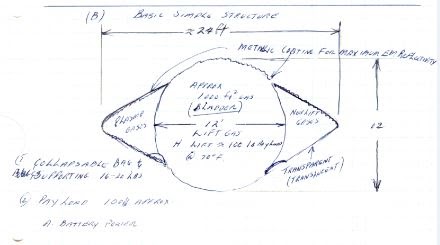 (B) BASIC SIMPLE STRUCTURE
≈ 24 ft
METALIC COATING FOR MAXIMUM EM REFLECTIVITY
APPROX
1000 ft³ GAS
(BLADDER)
GASES
NON LIFT
GASES
12'
12
LIFT GAS
LIFT ≈ 100 lb
@ 70°F
TRANSPARENT
(TRANSLUCENT)
(1 COLLAPSABLE BAG &
SUPPORTING 16-20 LBS
(2) PAY LOAD 100# APPROX
A. BATTERY POWER